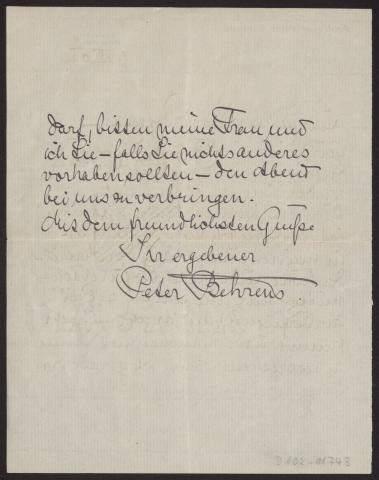 darf, bitten meine Frau und
ich Sie – falls Sie nichts anderes
vorhaben sollten – den Abend
bei uns zu verbringen.
Mit dem freundlichsten Gruße
Ihr ergebener
Peter Behrens